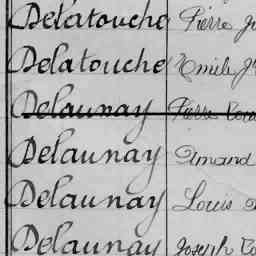 Delatouche Pierre
Delatouche Emile
Delaunay Pierre
Delaunay Amand
Delaunay Louis
Delaunay Joseph